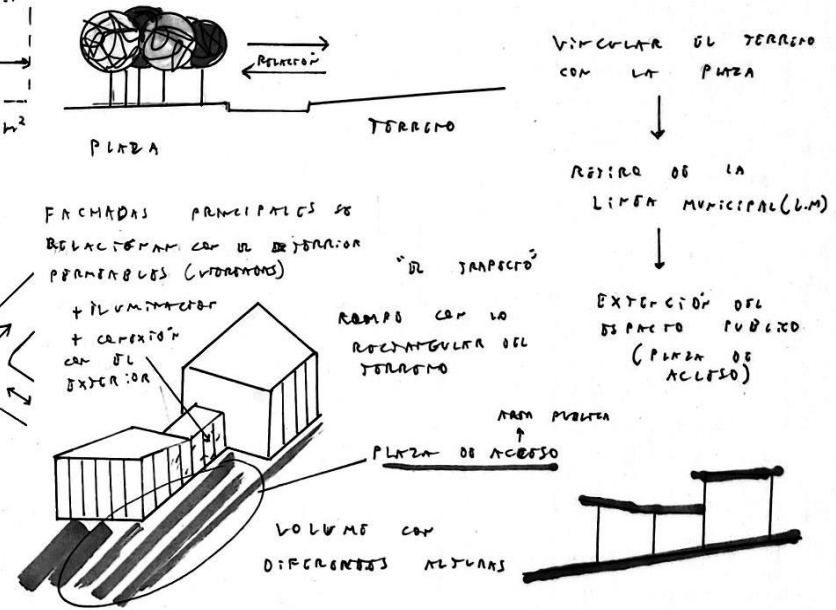 m²
RELACIÓN
PLAZA
TERRENO
VINCULAR EL TERRENO
CON LA PLAZA
RETIRO DE LA
LINEA MUNICIPAL (L.M)
EXTENCIÓN DEL
ESPACIO PUBLICO
(PLAZA DE
ACCESO)
FACHADAS PRINCIPALES SE
RELACIONAN CON EL EXTERRIOR
PERMEABLES (VIDRIADAS)
+ ILUMINACION
+ CONEXIÓN
CON EL
EXTERIOR
"EL TRAPECIO"
ROMPE CON LO
RECTANGULAR DEL
TERRENO
AREA PUBLICA
PLAZA DE ACCESO
VOLUME CON
DIFERENTES ALTURAS